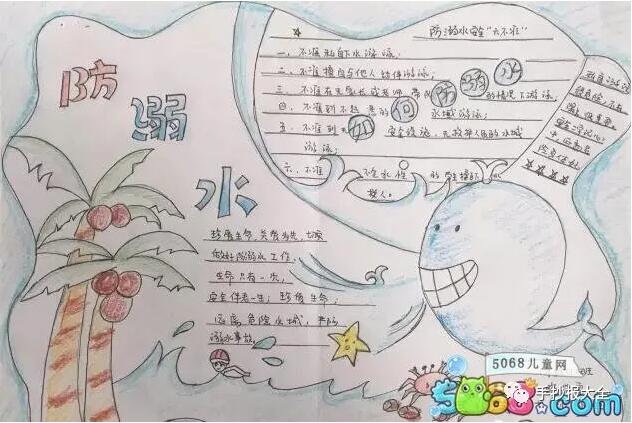 防
溺
水
防溺水"六不准"
一、不准私自下水游泳；
二、不准擅自与他人结伴游泳；
三、不准在无家长或老师带
的情况下游泳
四、不准到不熟悉的
水域游泳；
五、不准到无
安全设施、无救护人员的水域
游泳；
六、不准
不会水性
的学生擅自下水
救人。
如
何
防
溺
水
珍爱生命，关爱为先，切实
做好防溺水工作；
生命只有一次，
安全伴君一生；珍爱生命，
远离危险水域，
溺水事故。
5068儿童网
5068.com
手抄报大全